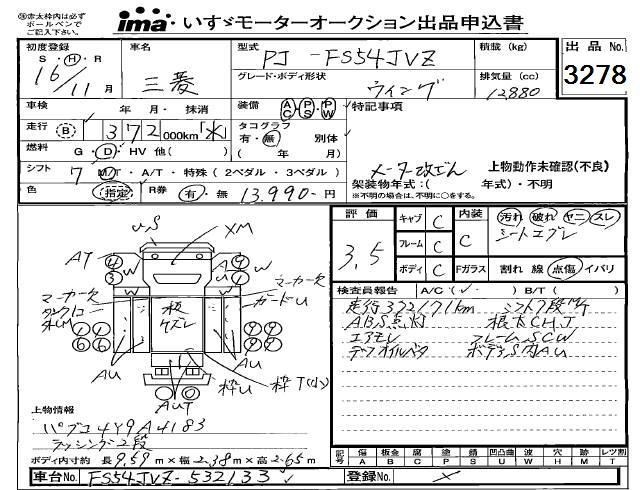 ㊟赤太枠内は必ずボールペンでご記入下さい。
ima いすゞモーターオークション出品申込書
初度登録 S・H・R 16/11月
車名 三菱
型式 PJ-FS54JVZ
積載 (kg)
出品No. 3278
グレード・ボディ形状 ウィング
排気量 (cc) 12880
車検 年・月・抹消
装備 AC・PS・PW
特記事項
走行 B 372000km「水」
タコグラフ 有・無 別体 (年 月)
燃料 G・D・HV 他( )
メーター改ざん
上物動作未確認(不良)
シフト 7 M/T・A/T・特殊(2ペダル・3ペダル)
架装物年式:( 年式)・不明
※不明の場合は、不明に○をする。
色 (指定) R券 有・無 13,990-円
評価 3.5
キャブ C
フレーム C
ボディ C
内装 C
汚れ 破れ ヤニ スレ
シートエブレ
Fガラス 割れ 線 点傷 イバリ
検査員報告 A/C( ✓・ ) B/T( )
走行372171km シフト7段MT
ABS点灯 根太CH.T
エアモレ フレームSCW
デフオイルベタ ボディS内AU
US XM
AY 4 3 W W 9 1 U
マーカー欠 マーカー欠
ガードU
板ケズレ
AU AU
枠U 枠T(小)
AUT
上物情報
パブコ 4Y9A4183
ラッシング2段
ボディ内寸約 長9.59m×幅2.38m×高2.65m
記号 傷A 板金B 腐C 塗P 錆S 凹凸曲U 波W 穴H 跡M レツ割T
車台No. FS54JVZ-532133
登録No.